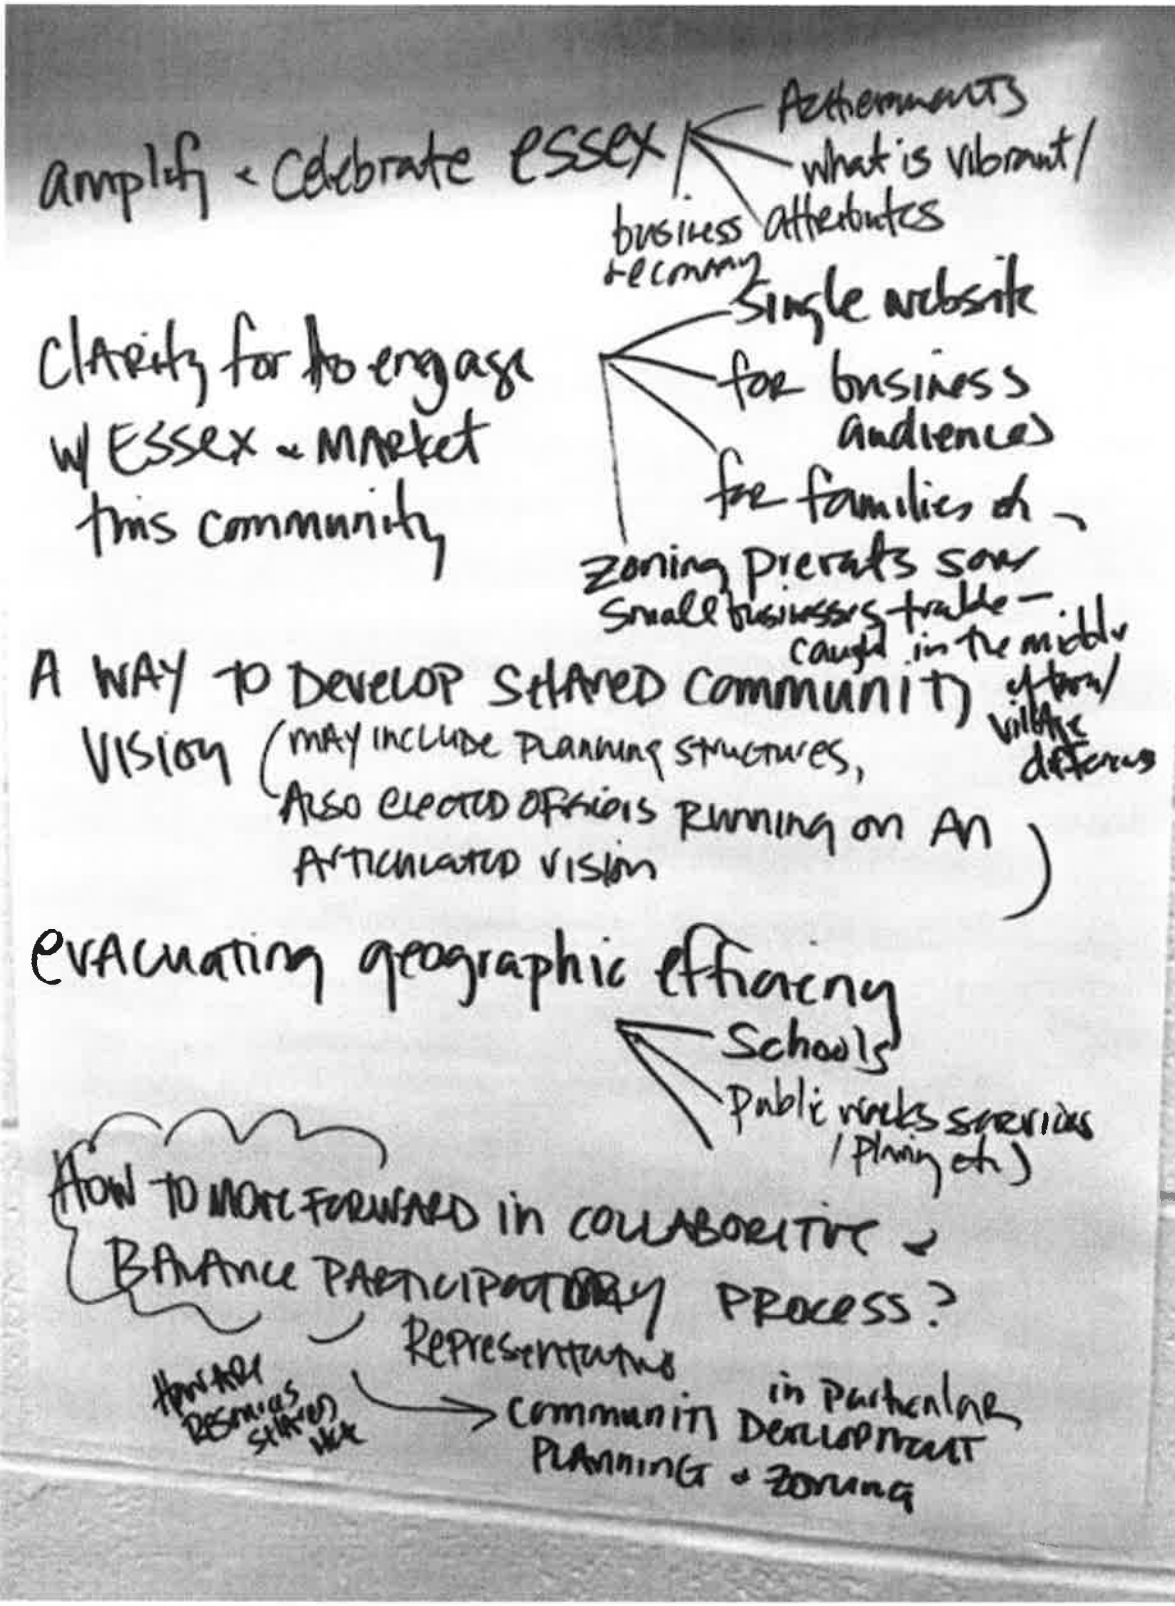 amplify & Celebrate essex
Achievements
what is vibrant /
attributes
business
+ economy
Clarity for to engage
w/ Essex & Market
this community
single website
for business
audiences
for families etc
zoning prevents some
small businesses trouble –
caught in the middle
of town/
village
differences
A WAY TO DEVELOP SHARED COMMUNITY
VISION (MAY INCLUDE PLANNING STRUCTURES,
ALSO ELECTED OFFICIALS RUNNING ON AN
ARTICULATED VISION )
evacuating geographic efficiency
Schools
Public works services
/ planing etc )
HOW TO MOVE FORWARD IN COLLABORITIVE &
BALANCE PARTICIPATORY PROCESS?
Representative
HOW ARE
RESOURCES
SHARED
in particular
COMMUNITY DEVELOPMENT
PLANNING & ZONING